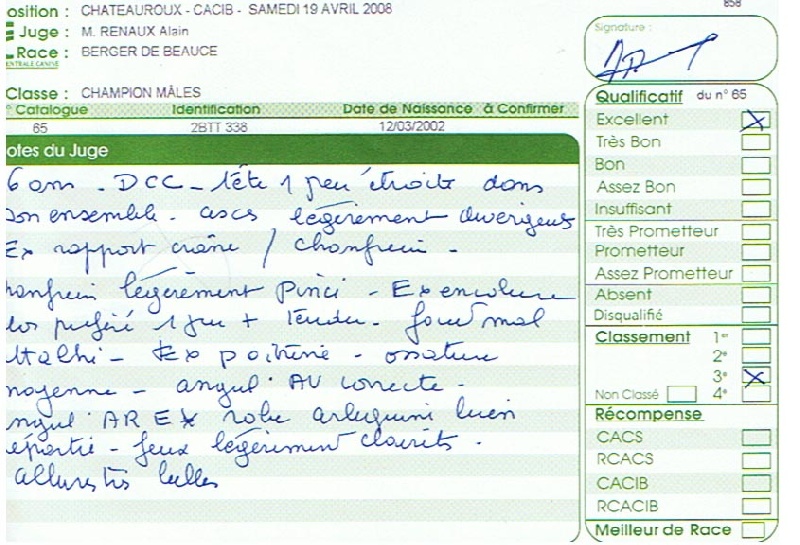 osition : CHATEAUROUX - CACIB - SAMEDI 19 AVRIL 2008
Juge : M. RENAUX Alain
Race : BERGER DE BEAUCE
Classe : CHAMPION MÂLES
Catalogue Identification Date de Naissonce à Confirmer
65 2BTT 338 12/03/2002
otes du Juge
6 ans - DCC - tête 1 peu étroite dans
son ensemble - axes légèrement divergeus
Ex rapport crâne / chanfrein -
hanfrein légèrement Pincé - Ex encolure
dos préféré 1 peu + tendu - fouet mal
attaché - Ex poitrine - ossature
moyenne - angul. AV correcte -
ngul. AR Ex robe arlequine bien
épartie - yeux légèrement clairets.
allures très belles
858
Signature :
Qualificatif du n° 65
Excellent
Très Bon
Bon
Assez Bon
Insuffisant
Très Prometteur
Prometteur
Assez Prometteur
Absent
Disqualifié
Classement 1er
2e
3e
Non Classé 4e
Récompense
CACS
RCACS
CACIB
RCACIB
Meilleur de Race